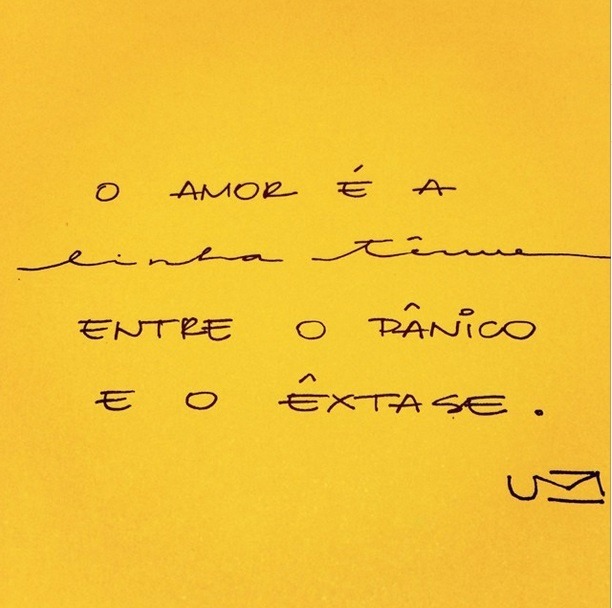 O AMOR É A
linha tênue
ENTRE O PÂNICO
E O ÊXTASE.